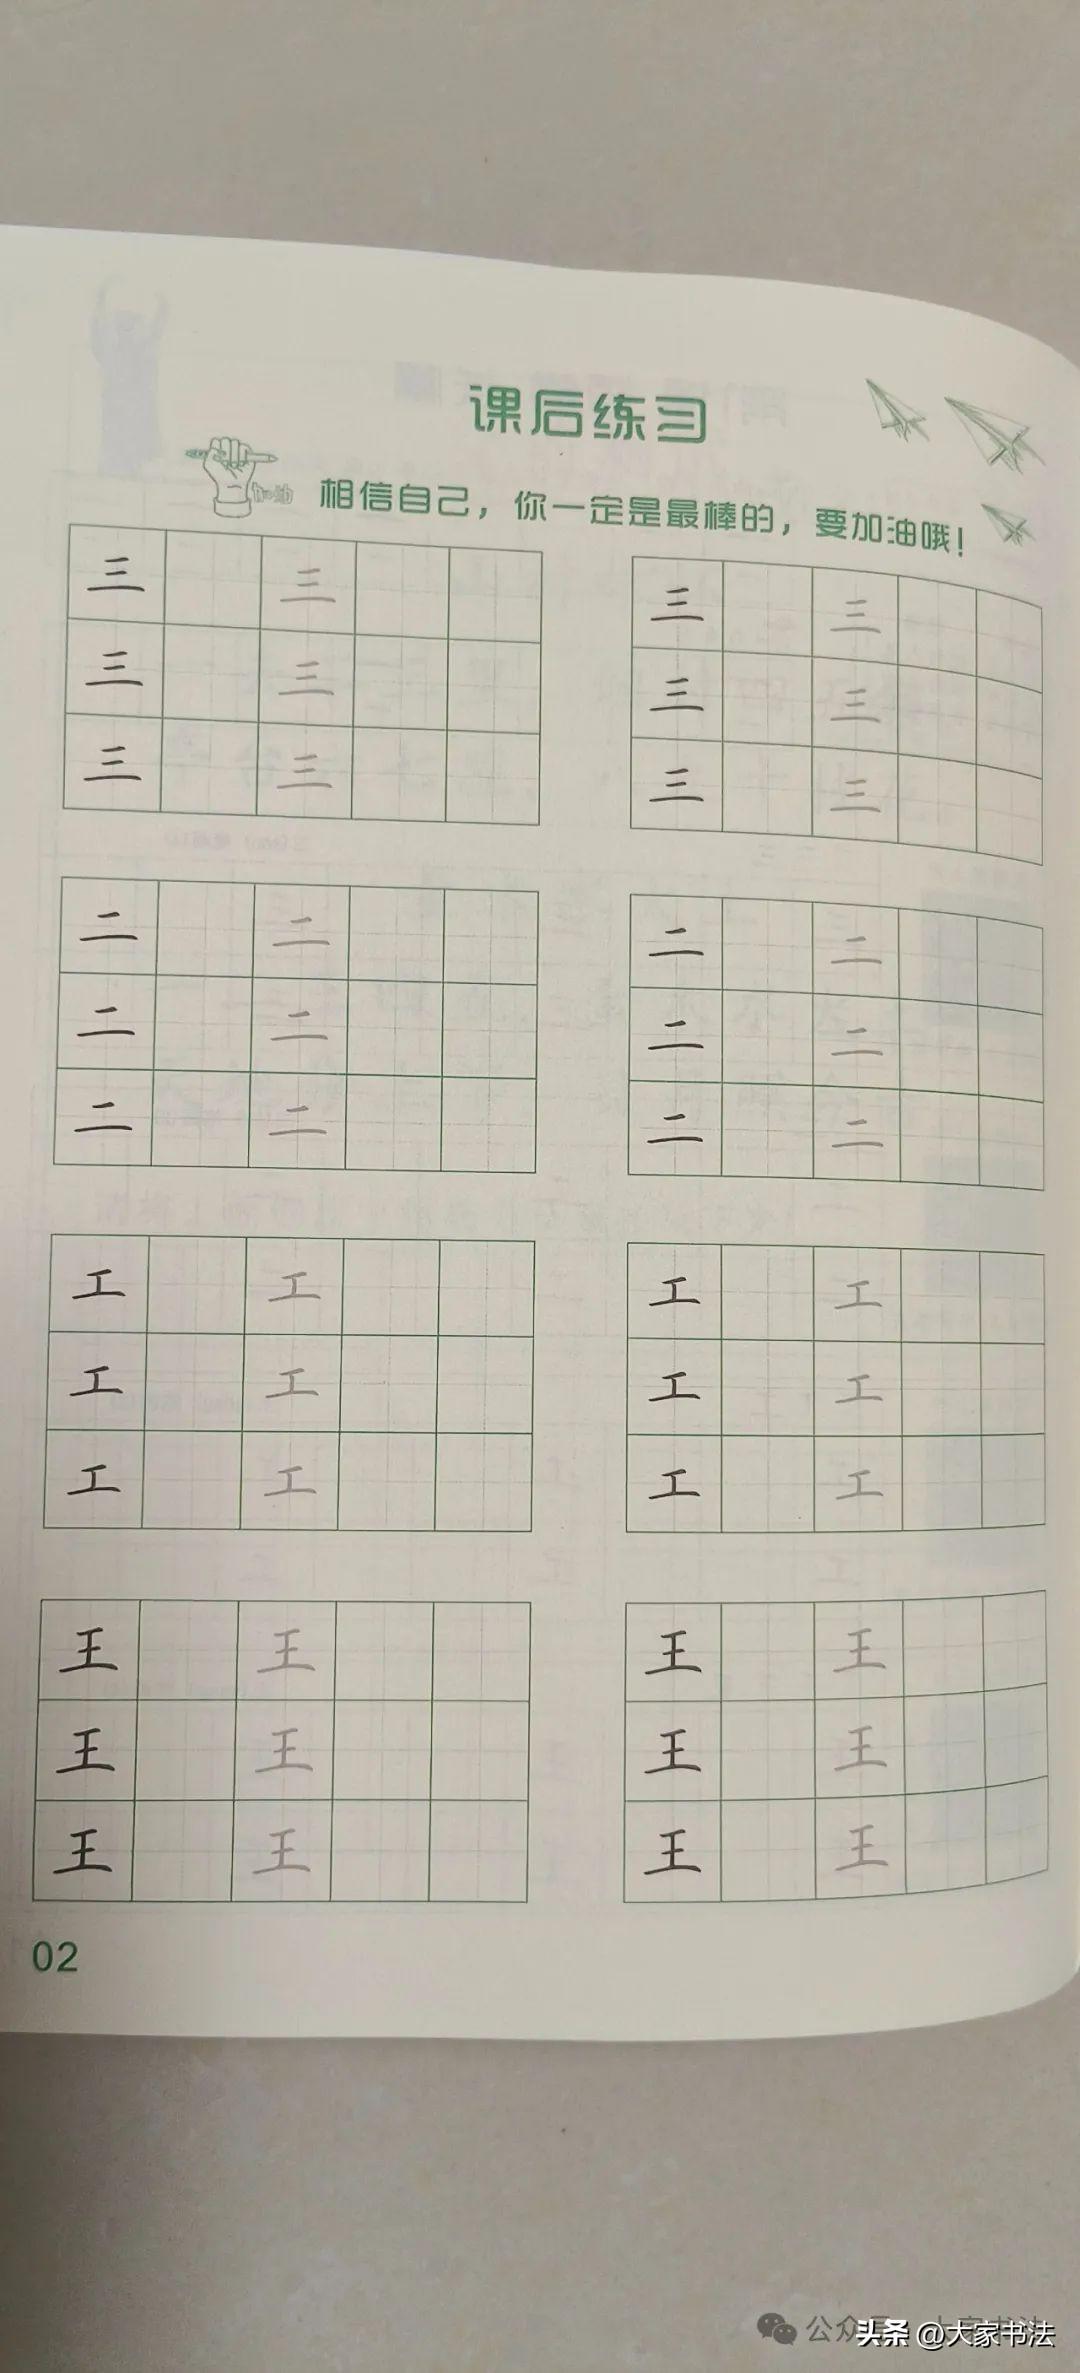 课后练习
加油
相信自己，你一定是最棒的，要加油哦！
三 三 三 三
三 三 三 三
三 三 三 三
二 二 二 二
二 二 二 二
二 二 二 二
工 工 工 工
工 工 工 工
工 工 工 工
王 王 王 王
王 王 王 王
王 王 王 王
02
头条 @大家书法